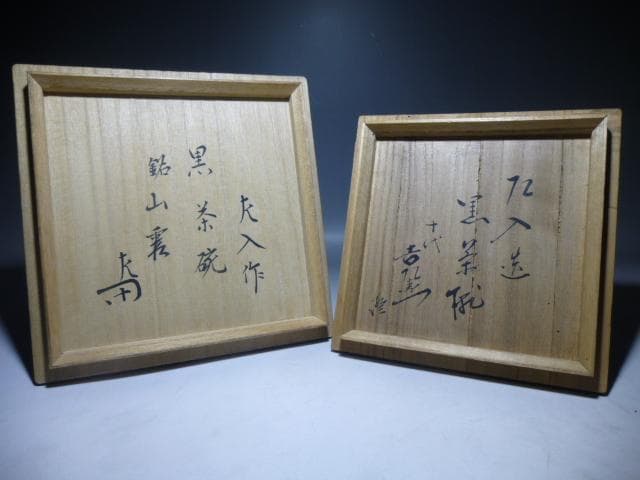 左入作
黒茶碗
銘山雲
左入造
黒茶碗
十代
吉左衛門